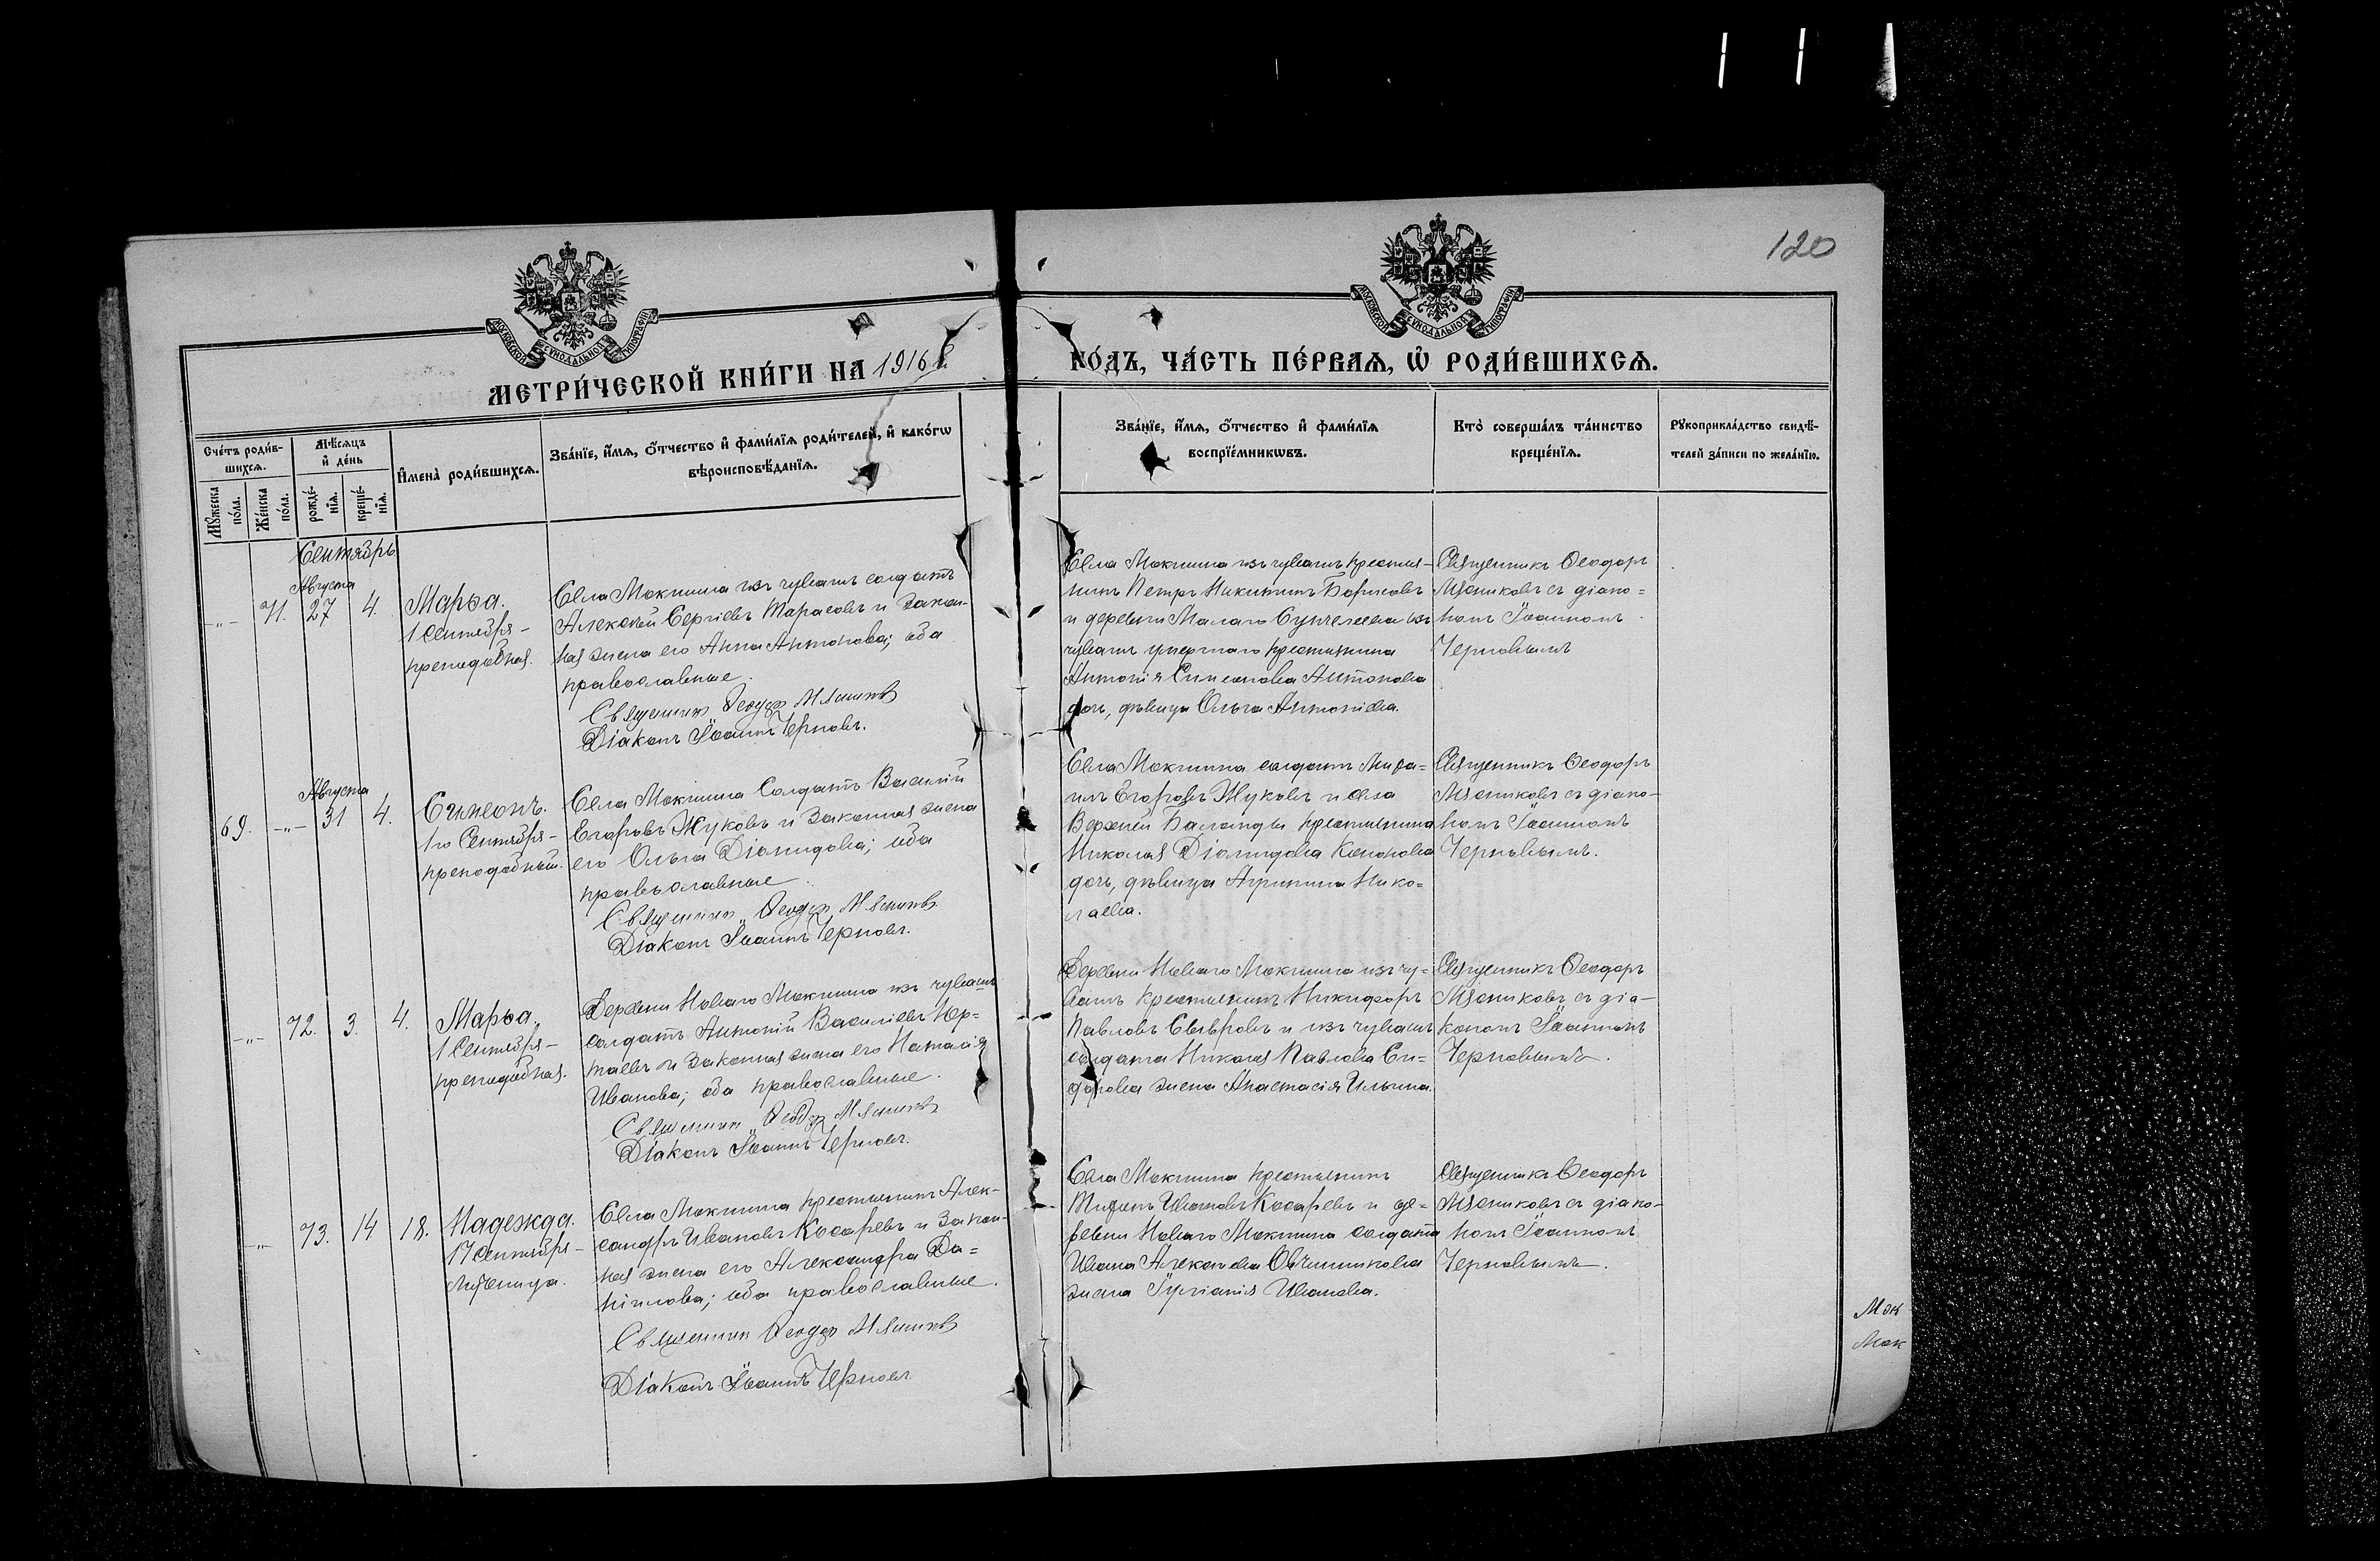 120
МОСКОВСКОЙ СУНОДАЛЬНОЙ ТИПОГРАФІИ
МОСКОВСКОЙ СУНОДАЛЬНОЙ ТИПОГРАФІИ
МЕТРИ́ЧЕСКОЙ КНИ́ГИ НА 1916 г.
ГО́ДЪ, ЧА́СТЬ ПЕ́РВАѦ, Ѡ҆ РОДИ́ВШИХСѦ.
Сче́тъ роди́в-
шихсѧ.
Мꙋ́жеска по́ла.
Же́нска по́ла.
Мѣ́сѧцъ
и҆ де́нь
рожде́-
нїѧ.
креще́-
нїѧ.
И҆мена̀ роди́вшихсѧ.
Зва́нїе, и҆́мѧ, ѻ҆́тчество и҆ фами́лїѧ роди́телей, и҆ како́гѡ
вѣроисповѣ́данїѧ.
Зва́нїе, и҆́мѧ, ѻ҆́тчество и҆ фами́лїѧ
воспрїе́мникѡвъ.
Кто̀ соверша́лъ та́инство
креще́нїѧ.
Рꙋкоприкла́дство свидѣ́-
телей за́писи по жела́нїю.
Сентябрь
Августа
-„- 71. 27 4.
Марѳа.
1 Сентября-
преподобная.
Села Мокшина изъ чувашъ солдатъ
Алексѣй Сергіевъ Тарасовъ и закон-
ная жена его Анна Антонова; оба
православные.
Священникъ Ѳеодоръ Мясниковъ
Діаконъ Іоаннъ Черновъ.
Села Мокшина изъ чувашъ крестья-
нинъ Петръ Никитинъ Борисовъ
и деревни Малаго Сунчелеева изъ
чувашъ умершаго крестьянина
Антонія Симеонова Антонова
дочь, дѣвица Ольга Антоніева.
Священникъ Ѳеодоръ
Мясниковъ съ діако=
номъ Іоанномъ
Черновымъ
Августа
69. -„- 31 4.
Симеонъ.
1го Сентября-
преподобный.
Села Мокшина Солдатъ Василій
Егоровъ Жуковъ и законная жена
его Ольга Діомидова; оба
православные.
Священникъ Ѳеодоръ Мясниковъ
Діаконъ Іоаннъ Черновъ.
Села Мокшина солдатъ Миха=
илъ Егоровъ Жуковъ и села
Верхней Баланды крестьянина
Николая Діомидова Кононова
дочь, дѣвица Агрипина Нико=
лаева.
Священникъ Ѳеодоръ
Мясниковъ съ діако-
номъ Іоанномъ
Черновымъ.
-„- 72. 3. 4.
Марѳа.
1 Сентября-
преподобная.
Деревни Новаго Мокшина изъ чувашъ
солдатъ Антоній Василіевъ Ур=
таевъ и законная жена его Наталія
Иванова; оба православные.
Священникъ Ѳеодоръ Мясниковъ
Діаконъ Іоаннъ Черновъ.
Деревни Новаго Мокшина изъ чу=
вашъ крестьянинъ Никифоръ
Павловъ и изъ чувашъ
солдата Николая Павлова Си=
дорова жена Анастасія Ильина.
Священникъ Ѳеодоръ
Мясниковъ съ діа-
кономъ Іоанномъ
Черновымъ.
-„- 73. 14 18.
Надежда.
17 Сентября-
мученица.
Села Мокшина крестьянинъ Алек-
сандръ Ивановъ Косаревъ и закон-
ная жена его Александра Да=
ніилова; оба православные.
Священникъ Ѳеодоръ Мясниковъ
Діаконъ Іоаннъ Черновъ
Села Мокшина крестьянинъ
Ивановъ Косаревъ и де=
ревни Новаго Мокшина солдата
Ивана Алексѣева Овчинникова
жена Іуліанія Иванова.
Священникъ Ѳеодоръ
Мясниковъ съ діако-
номъ Іоанномъ
Черновымъ.
Мок
Мок